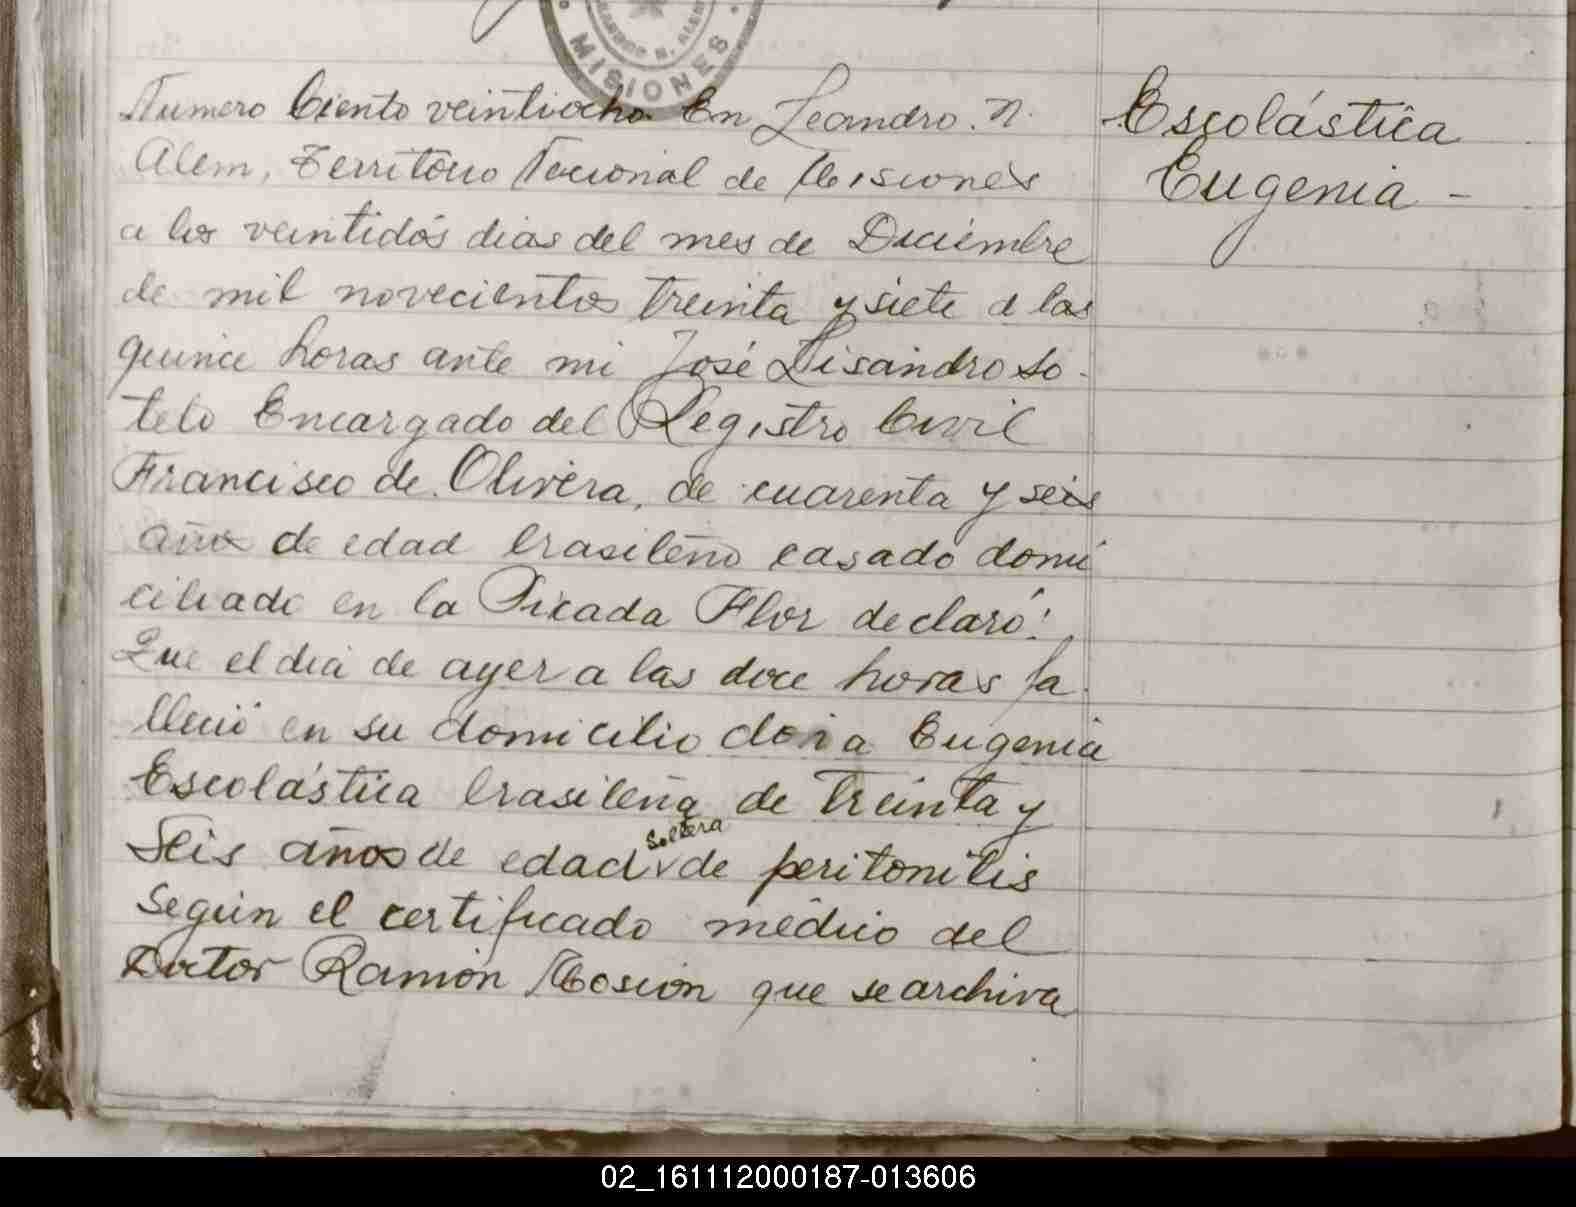 MISIONES
Numero Ciento veintiocho. En Leandro. N.
Alem, Territorio Nacional de Misiones
a los veintidós dias del mes de Diciembre
de mil novecientos treinta y siete a las
quince horas ante mi José Lisandro So-
telo Encargado del Registro Civil
Francisco de Olivera, de cuarenta y seis
años de edad brasileño casado domi
ciliado en la Picada Flor declaró:
Que el dia de ayer a las doce horas fa-
lleció en su domicilio doña Eugenia
Escolástica brasileña de treinta y
Seis años de edad soltera de peritonitis
Según el certificado médico del
Doctor Ramón que se archiva
Escolástica
Eugenia -
02_161112000187-013606